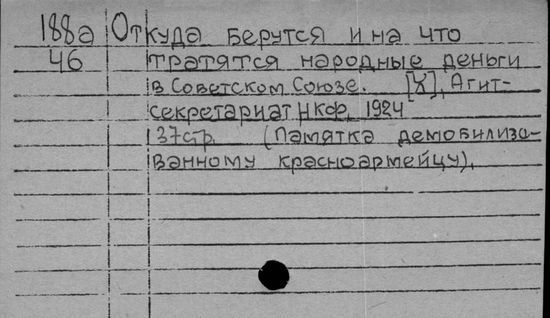 188а Откуда берутся и на что
46 тратятся народные деньги
в Советском Союзе. [Х], Агит-
секретариат НКФ, 1924
37стр. (Памятка демобилизо-
ванному красноармейцу),